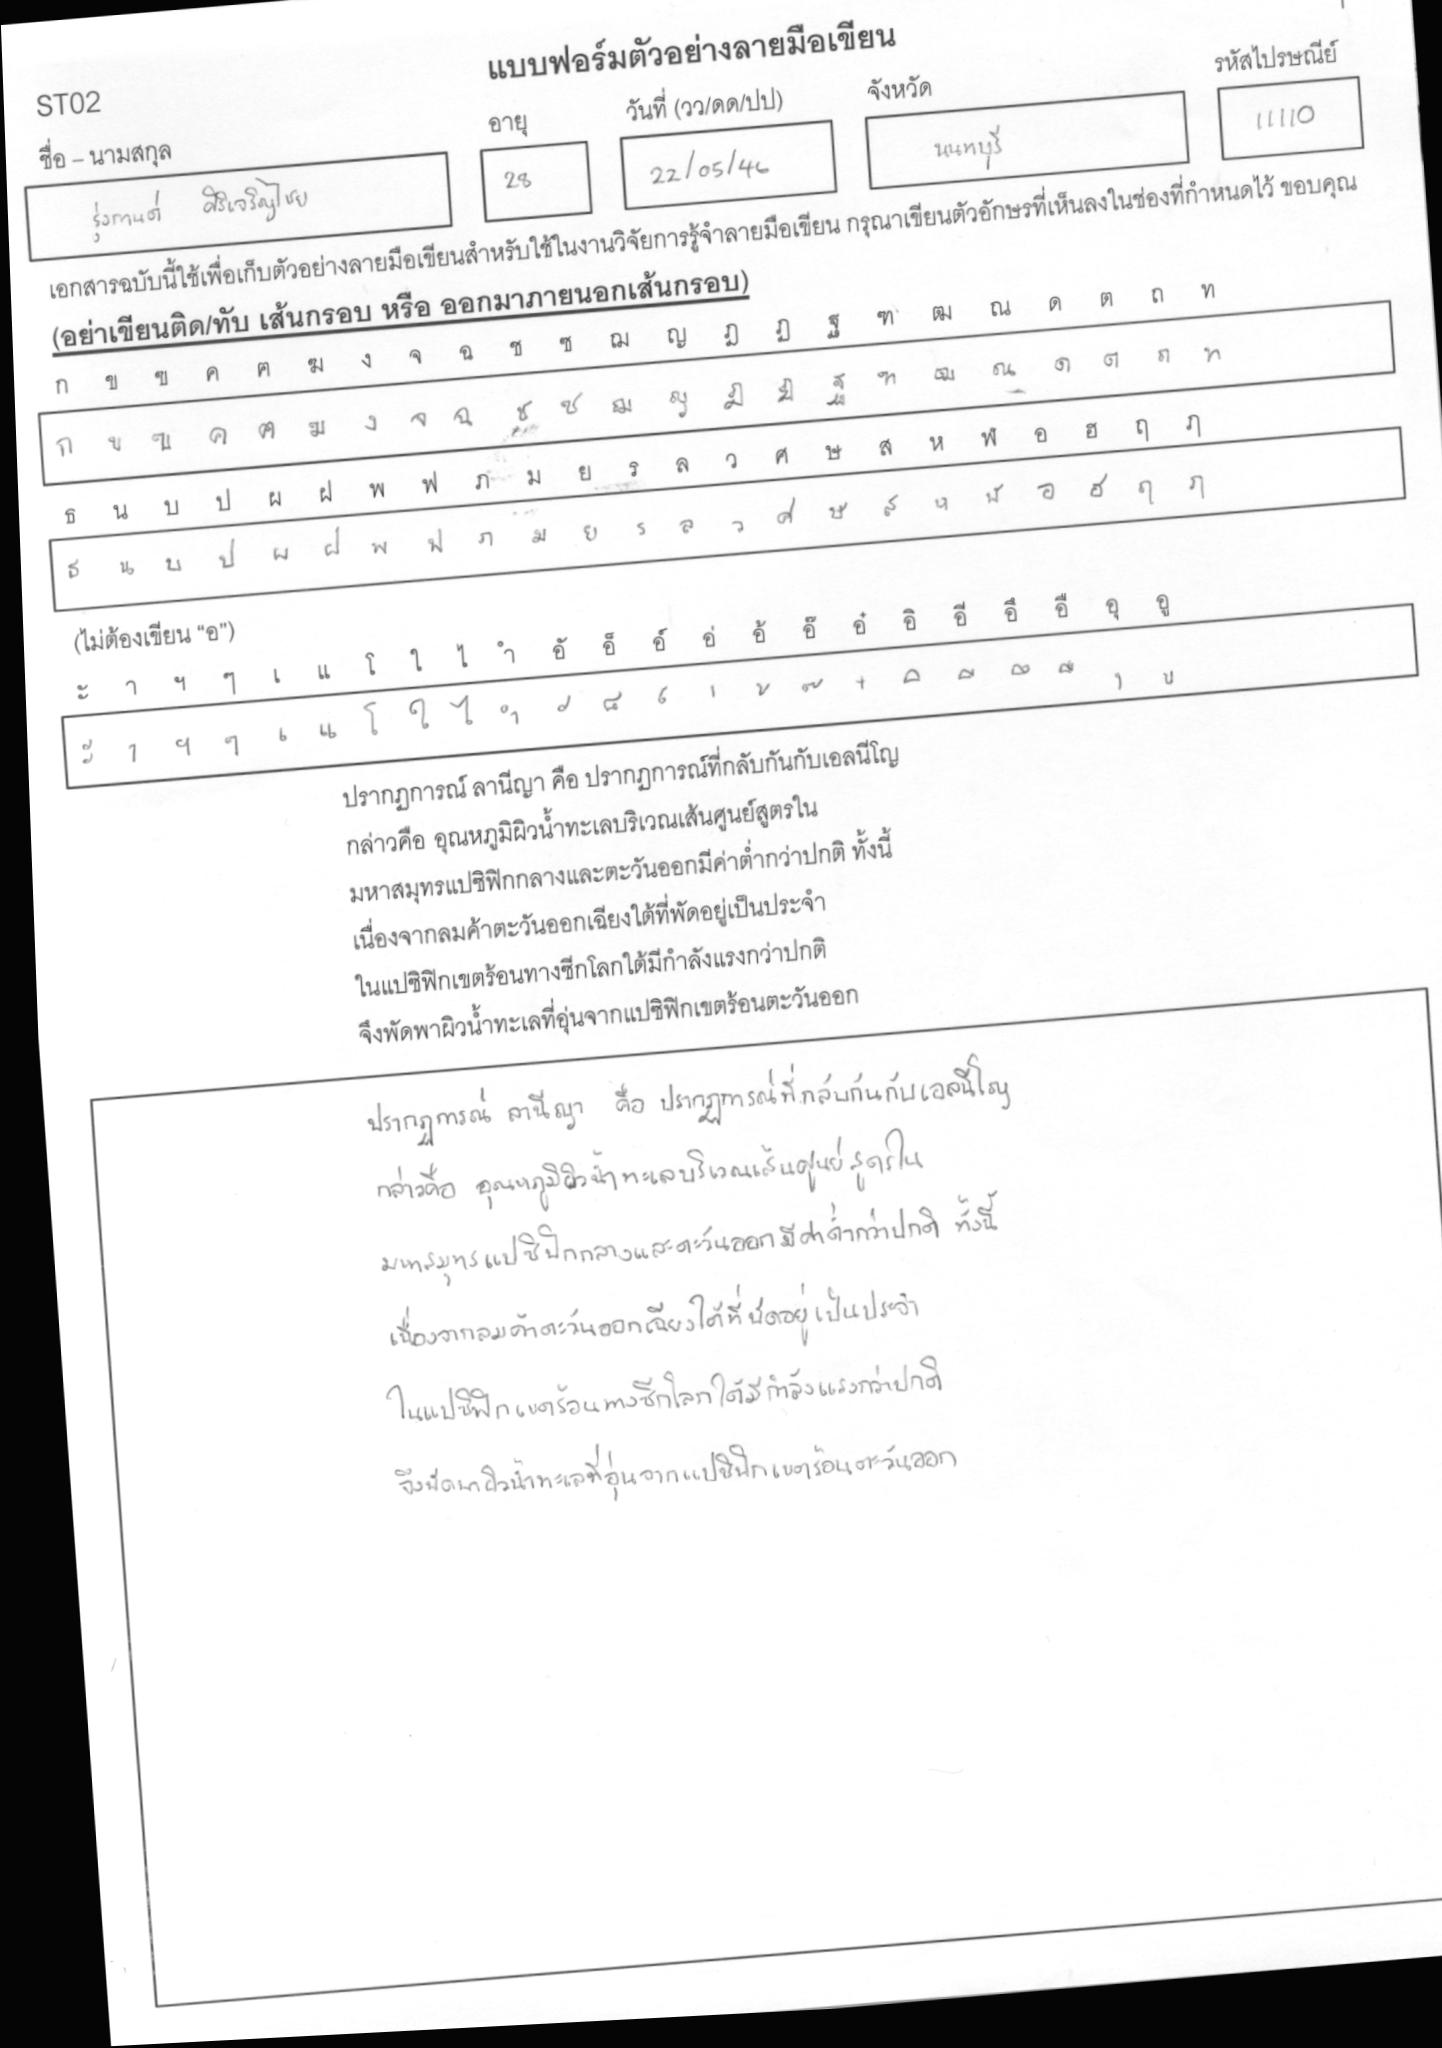 แบบฟอร์มตัวอย่างลายมือเขียน
ST02
ชื่อ – นามสกุล อายุ วันที่ (วว/ดด/ปป) จังหวัด รหัสไปรษณีย์
รุ่งกานต์ ศิริเจริญไชย 28 22/05/46 นนทบุรี 11110
เอกสารฉบับนี้ใช้เพื่อเก็บตัวอย่างลายมือเขียนสำหรับใช้ในงานวิจัยการรู้จำลายมือเขียน กรุณาเขียนตัวอักษรที่เห็นลงในช่องที่กำหนดไว้ ขอบคุณ
(อย่าเขียนติด/ทับ เส้นกรอบ หรือ ออกมาภายนอกเส้นกรอบ)
ก ข ฃ ค ฅ ฆ ง จ ฉ ช ซ ฌ ญ ฎ ฏ ฐ ฑ ฒ ณ ด ต ถ ท
ก ข ฃ ค ฅ ฆ ง จ ฉ ช ซ ฌ ญ ฎ ฏ ฐ ฑ ฒ ณ ด ต ถ ท
ธ น บ ป ผ ฝ พ ฟ ภ ม ย ร ล ว ศ ษ ส ห ฬ อ ฮ ฤ ฦ
ธ น บ ป ผ ฝ พ ฟ ภ ม ย ร ล ว ศ ษ ส ห ฬ อ ฮ ฤ ฦ
(ไม่ต้องเขียน “อ”)
ะ า ฯ ๆ เ แ โ ใ ไ ำ อั อ็ อ์ อ่ อ้ อ๊ อ๋ อิ อี อึ อื อุ อู
ะ า ฯ ๆ เ แ โ ใ ไ ำ ั ็ ์ ่ ้ ๊ ๋ ิ ี ึ ื ุ ู
ปรากฏการณ์ ลานีญา คือ ปรากฏการณ์ที่กลับกันกับเอลนีโญ
กล่าวคือ อุณหภูมิผิวน้ำทะเลบริเวณเส้นศูนย์สูตรใน
มหาสมุทรแปซิฟิกกลางและตะวันออกมีค่าต่ำกว่าปกติ ทั้งนี้
เนื่องจากลมค้าตะวันออกเฉียงใต้ที่พัดอยู่เป็นประจำ
ในแปซิฟิกเขตร้อนทางซีกโลกใต้มีกำลังแรงกว่าปกติ
จึงพัดพาผิวน้ำทะเลที่อุ่นจากแปซิฟิกเขตร้อนตะวันออก
ปรากฏการณ์ ลานีญา คือ ปรากฏการณ์ที่กลับกันกับเอลนีโญ
กล่าวคือ อุณหภูมิผิวน้ำทะเลบริเวณเส้นศูนย์สูตรใน
มหาสมุทรแปซิฟิกกลางและตะวันออกมีค่าต่ำกว่าปกติ ทั้งนี้
เนื่องจากลมค้าตะวันออกเฉียงใต้ที่พัดอยู่เป็นประจำ
ในแปซิฟิกเขตร้อนทางซีกโลกใต้มีกำลังแรงกว่าปกติ
จึงพัดพาผิวน้ำทะเลที่อุ่นจากแปซิฟิกเขตร้อนตะวันออก